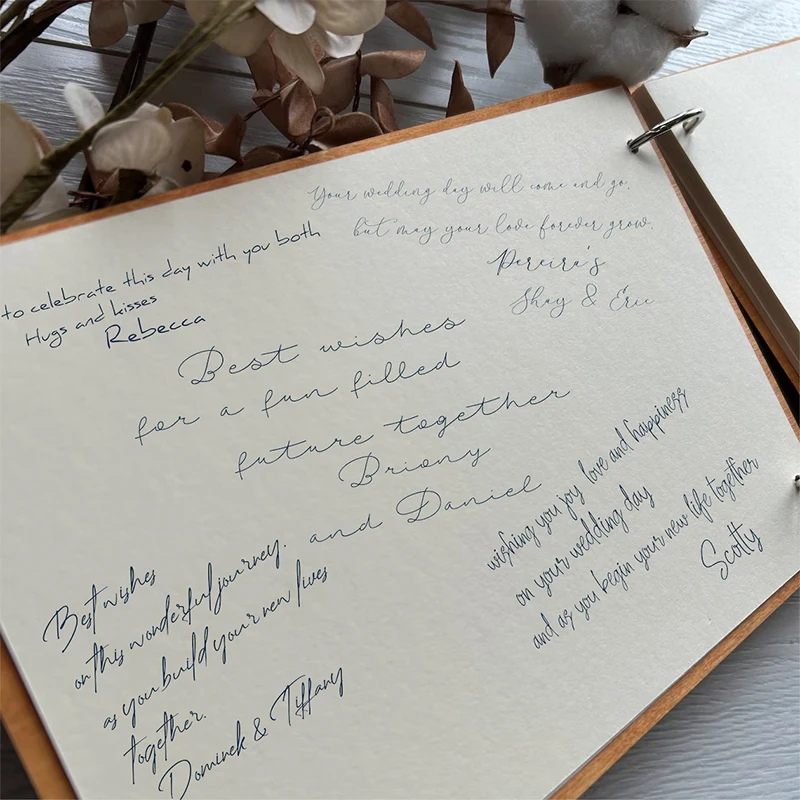 Your wedding day will come and go,
but may your love forever grow.
Pereira's
Shay & Eric
to celebrate this day with you both
Hugs and kisses
Rebecca
Best wishes
for a fun filled
future together
Briony
and Daniel
wishing you joy love and happiness
on your wedding day
and as you begin your new life together
Scotty
Best wishes
on this wonderful journey.
as you build your new lives
together.
Dominek & Tiffany